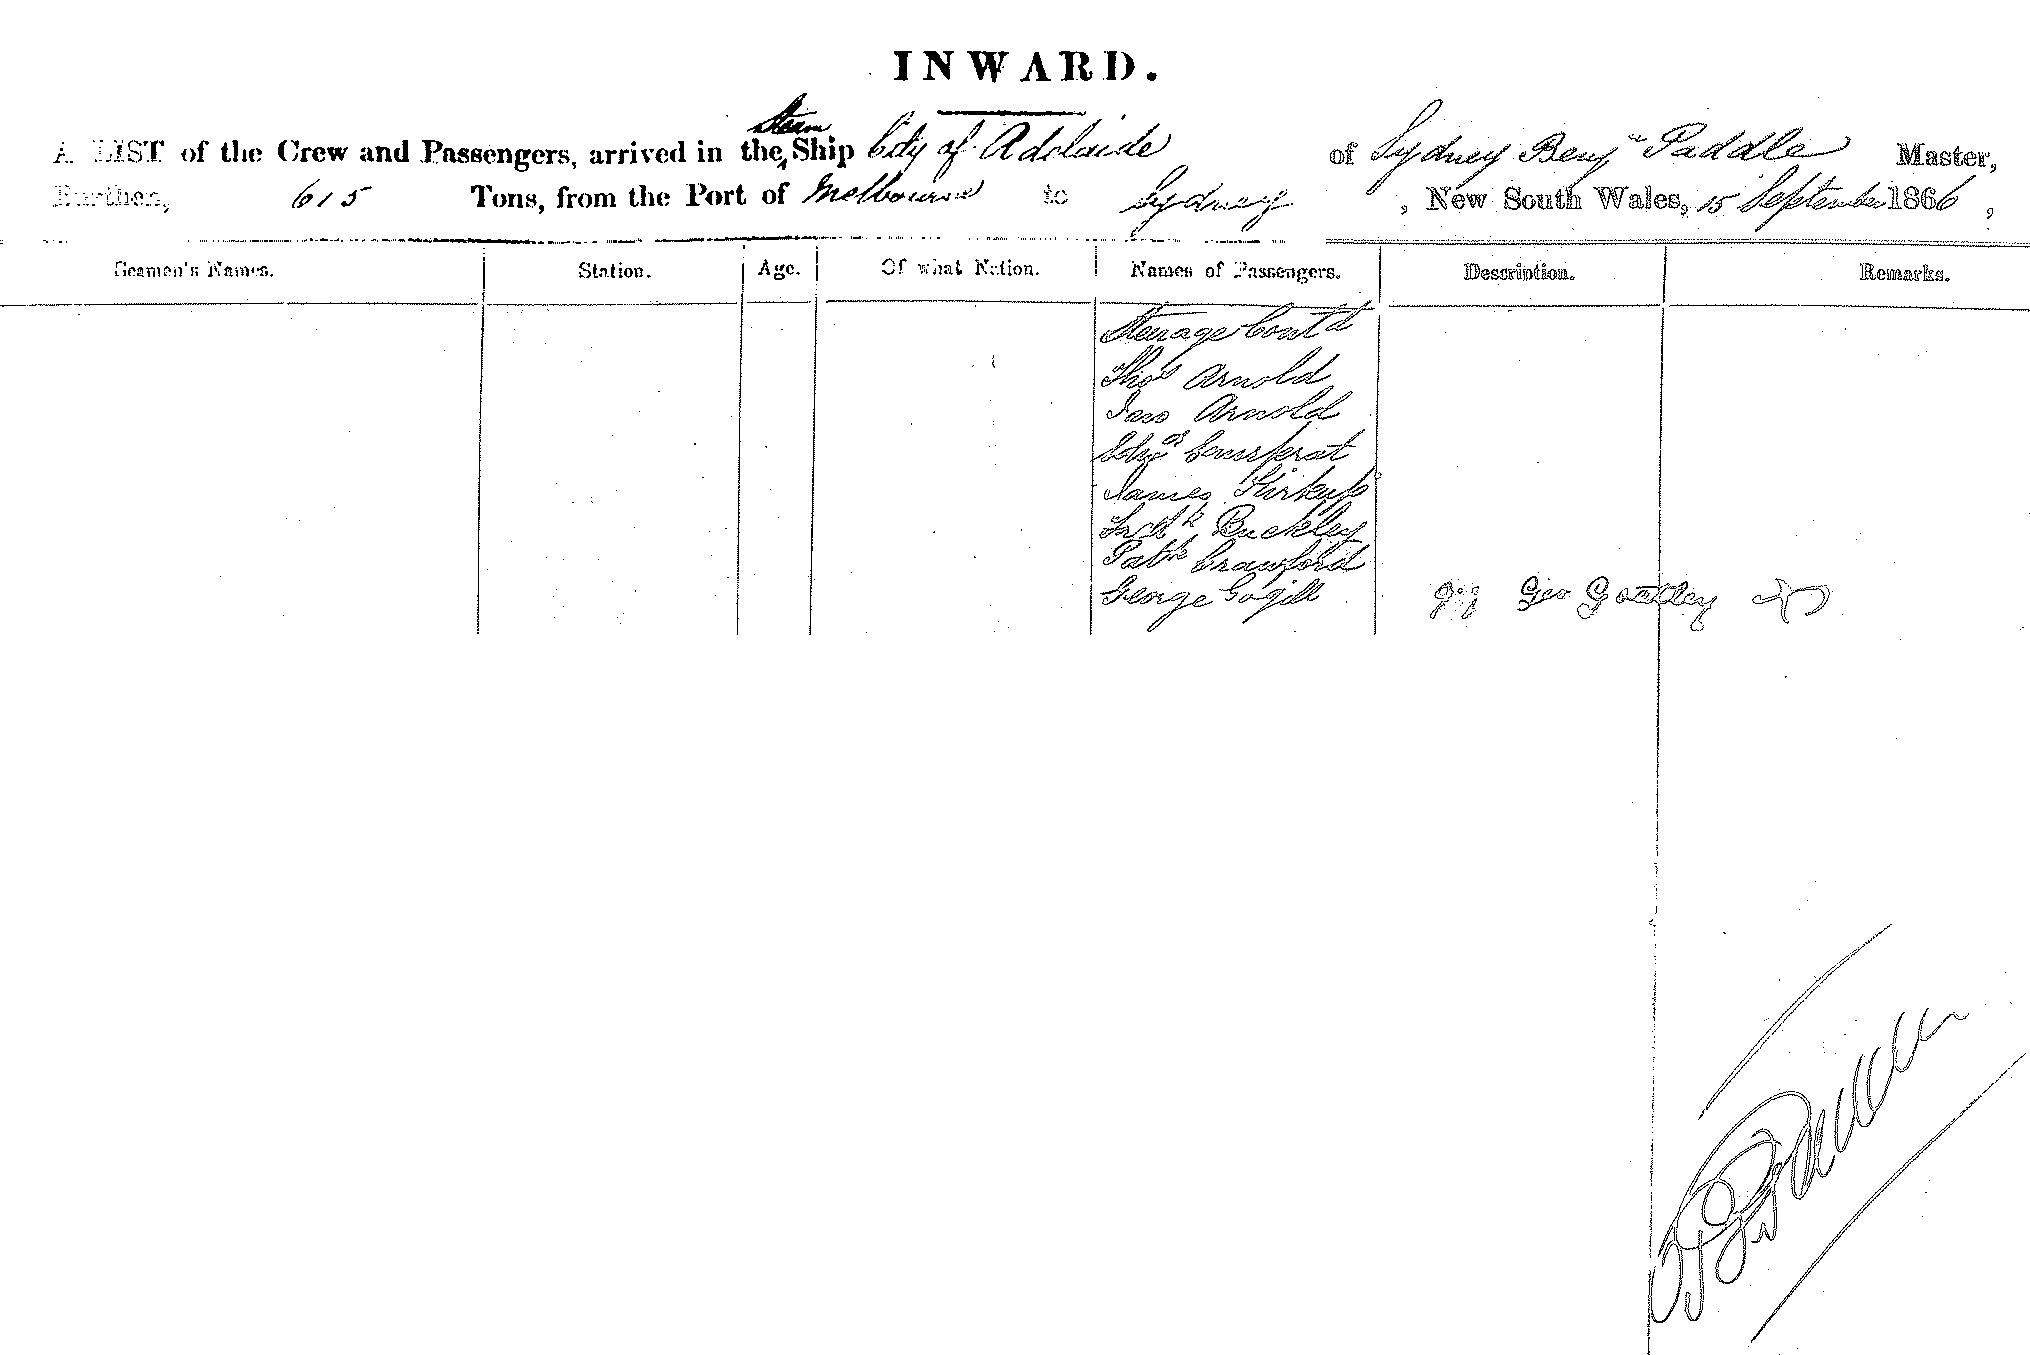 INWARD.
A LIST of the Crew and Passengers, arrived in the Steam Ship City of Adelaide of Sydney Benjn Paddle Master,
Burthen, 615 Tons, from the Port of Melbourne to Sydney, New South Wales, 15 September 1866,
Seamen's Names. Station. Age. Of what Nation. Names of Passengers. Description. Remarks.
Steerage Cont'd
Thos Arnold
Jass Arnold
James Kirkup
Fredk Buckley
Patk Crawford
George Gogill Geo Goatley